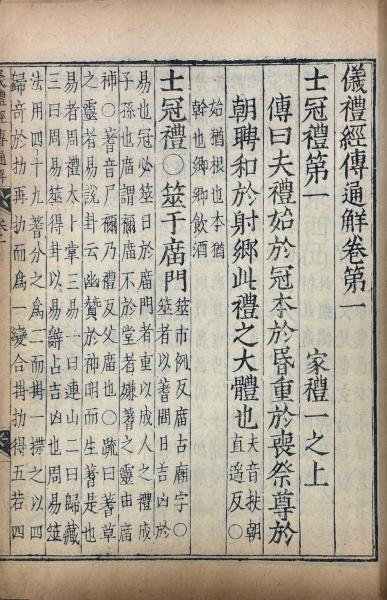 儀禮經傳通解卷第一
士冠禮第一　家禮一之上
傳曰夫禮始於冠本於昏重於喪祭尊於
朝聘和於射鄉此禮之大體也夫音扶朝
直遥反○
始猶根也本猶
幹也鄉鄉飲酒
士冠禮○筮于庿門筮市例反庿古廟字○
筮者以蓍問日吉凶於
易也冠必筮日於庿門者重以成人之禮成
子孫也庿謂禰庿不於堂者嫌蓍之靈由庿
神○蓍音尸禰乃禮反父庿也○疏曰蓍草
之靈者易說卦云幽贊於神明而生蓍是也
易者周禮大卜掌三易一曰連山二曰歸藏
三曰周易筮得卦以易辭占吉凶也周易筮
法用四十九蓍分之為二而卦一揲之以四
歸奇於扐再扐而為一變合卦扐得五若四